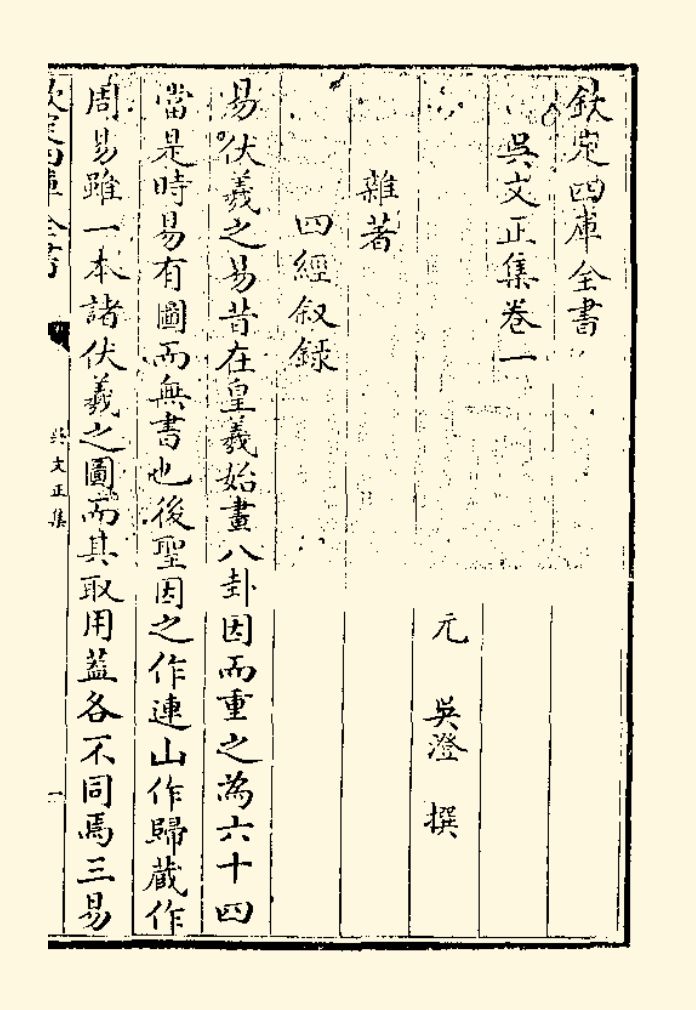 欽定四庫全書
吳文正集卷一
元 吳澄 撰
雜著
四經叙録
易伏羲之易昔在皇羲始畫八卦因而重之為六十四
當是時易有圖而無書也後聖因之作連山作歸蔵作
周易雖一本諸伏羲之圖而其取用葢各不同焉三易
欽定四庫全書
吳文正集
一